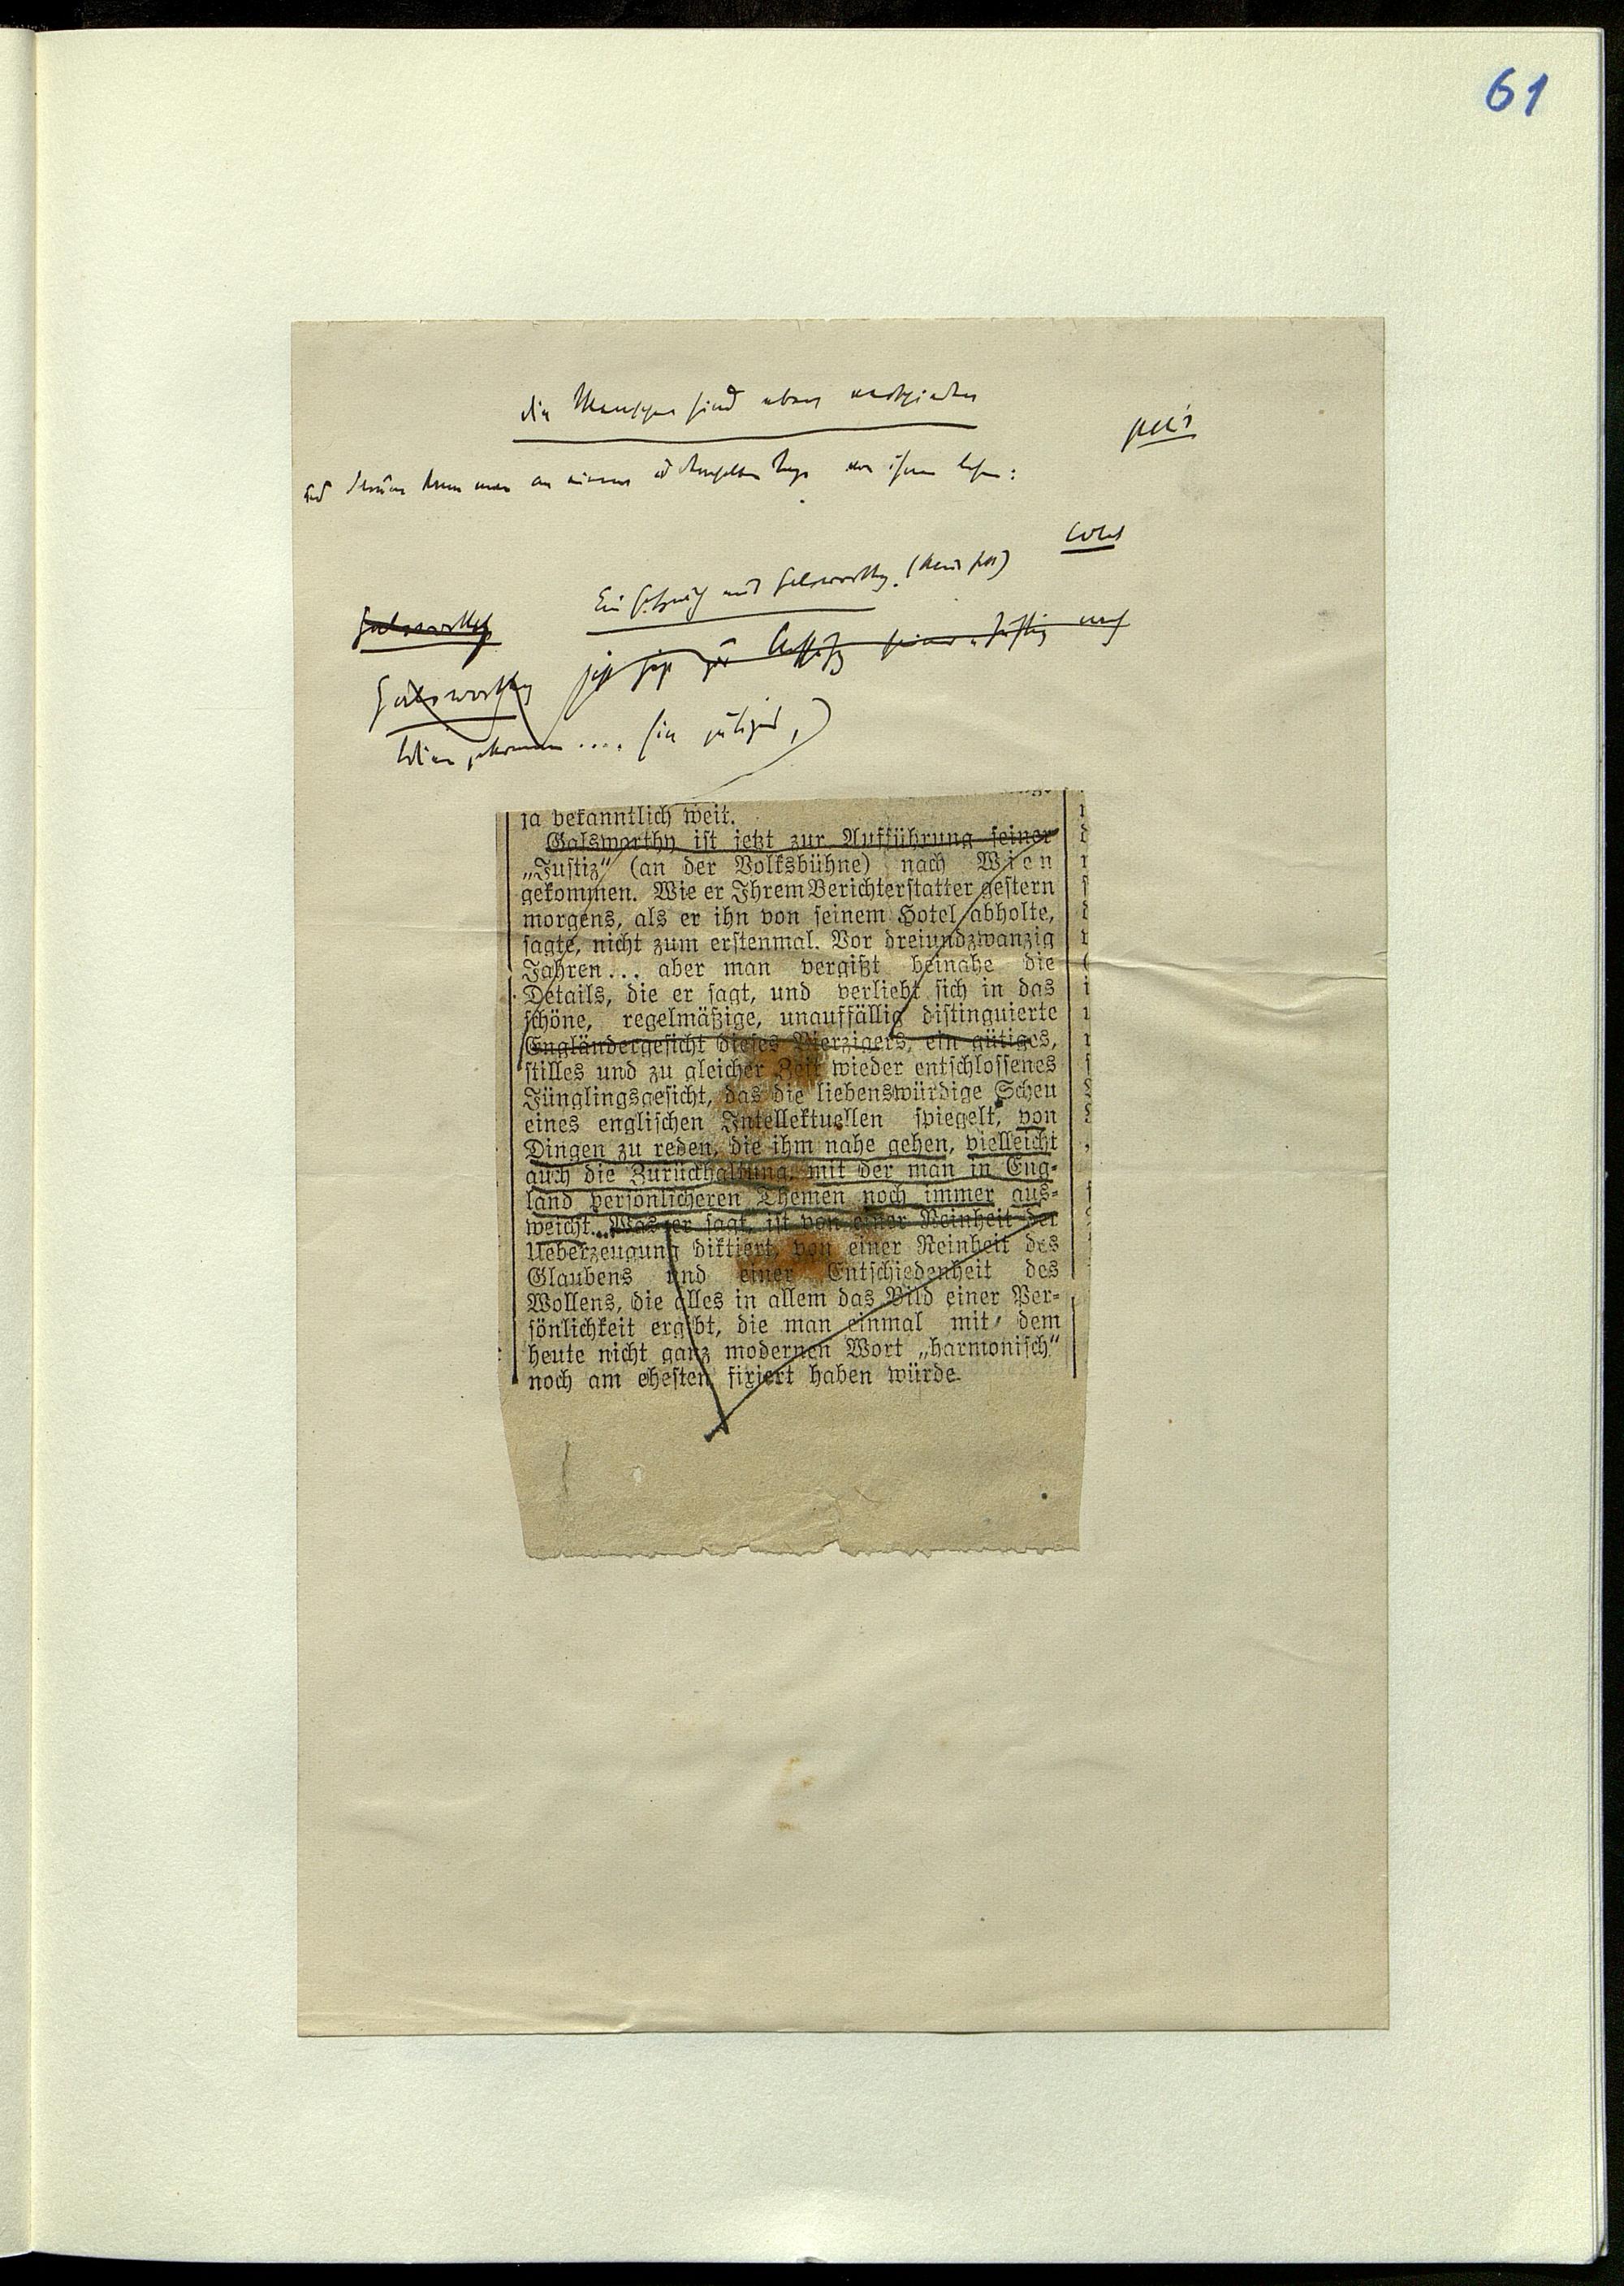 61
die Menschen sind eben verschieden
und darum kann man an einem u demselben Tage von ihnen lesen:
Ein Gespräch mit Galsworthy.
Galsworthy
Galsworthy jetzt zur Aufführung seiner „Justiz nach
Wien gekommen .... (ein gütiges,)
ja bekanntlich weit.
Galsworthy ist jetzt zur Aufführung seiner
„Justiz“ (an der Volksbühne) nach Wien
gekommen. Wie er Ihrem Berichterstatter gestern
morgens, als er ihn von seinem Hotel abholte,
sagte, nicht zum erstenmal. Vor dreiundzwanzig
Jahren... aber man vergißt beinahe die
Details, die er sagt, und verliebt sich in das
schöne, regelmäßige, unauffällig distinguierte
Engländergesicht dieses Vierzigers, ein gütiges,
stilles und zu gleicher Zeit wieder entschlossenes
Jünglingsgesicht, das die liebenswürdige Scheu
eines englischen Intellektuellen spiegelt, von
Dingen zu reden, die ihm nahe gehen, vielleicht
auch die Zurückhaltung, mit der man in Eng-
land persönlicheren Themen noch immer aus-
weicht. Was er sagt, ist von einer Reinheit der
Ueberzeugung diktiert, von einer Reinheit des
Glaubens und einer Entschiedenheit des
Wollens, die alles in allem das Bild einer Per-
sönlichkeit ergibt, die man einmal mit dem
heute nicht ganz modernen Wort „harmonisch“
noch am ehesten fixiert haben würde.